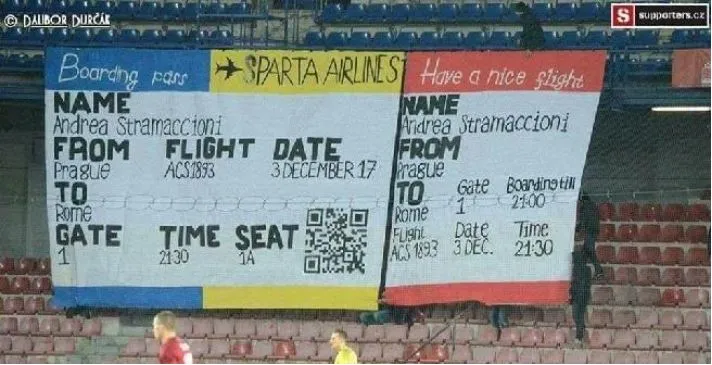 © DALIBOR DURČÁK
S supporters.cz
Boarding pass
SPARTA AIRLINES
NAME
Andrea Stramaccioni
FROM FLIGHT DATE
Prague ACS1893 3 DECEMBER 17
TO
Rome
GATE TIME SEAT
1 21:30 1A
Have a nice flight
NAME
Andrea Stramaccioni
FROM
Prague
TO Gate Boarding till
Rome 1 21:00
Flight Date Time
ACS 1893 3 DEC. 21:30